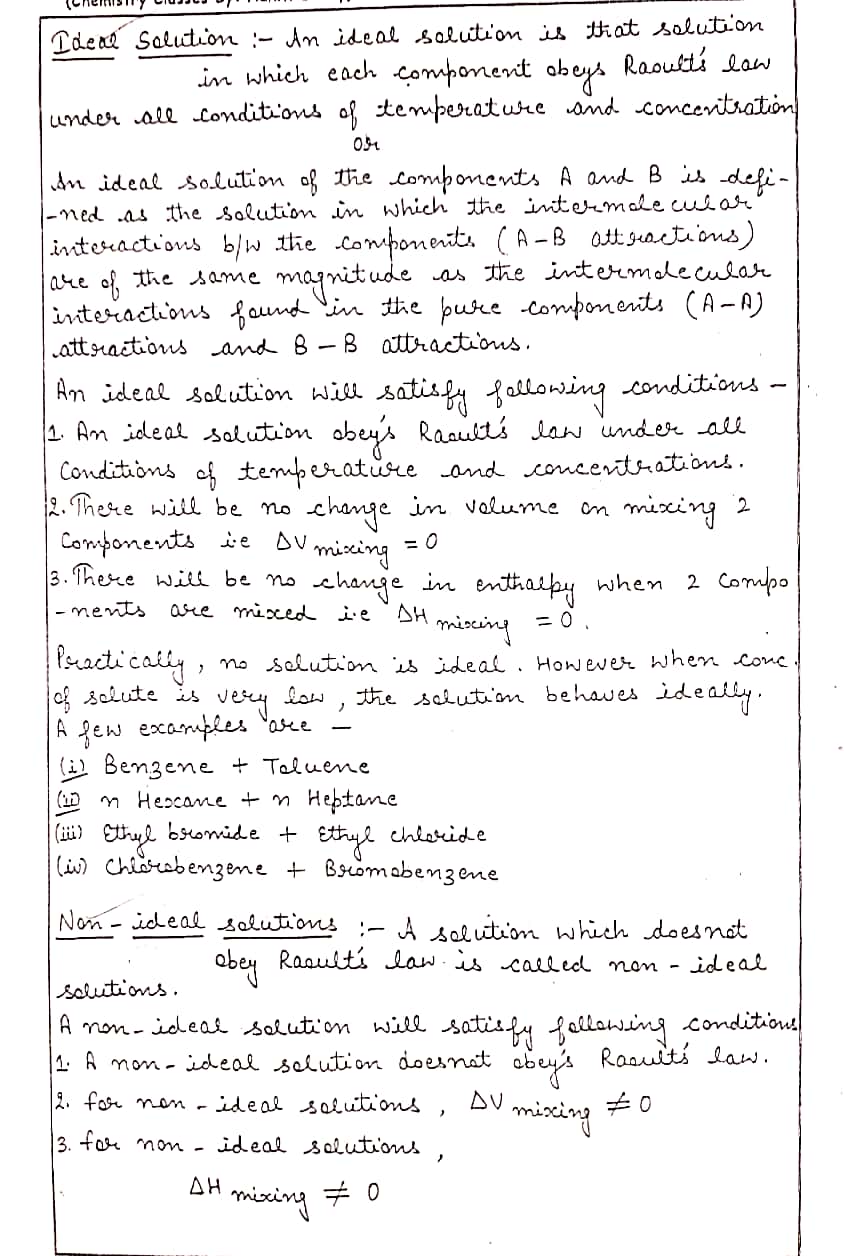 Ideal Solution :- An ideal solution is that solution
in which each component obeys Raoult's law
under all conditions of temperature and concentration
or
An ideal solution of the components A and B is defi-
-ned as the solution in which the intermolecular
interactions b/w the components (A-B attractions)
are of the same magnitude as the intermolecular
interactions found in the pure components (A-A)
attractions and B-B attractions.
An ideal solution will satisfy following conditions -
1. An ideal solution obey's Raoult's law under all
Conditions of temperature and concentrations.
2. There will be no change in volume on mixing 2
Components i.e ΔV mixing = 0
3. There will be no change in enthalpy when 2 Compo
-nents are mixed i.e ΔH mixing = 0.
Practically, no solution is ideal. However when conc.
of solute is very low, the solution behaves ideally.
A few examples are -
(i) Benzene + Toluene
(ii) n Hexane + n Heptane
(iii) Ethyl bromide + Ethyl chloride
(iv) Chlorobenzene + Bromobenzene
Non-ideal solutions :- A solution which doesnot
obey Raoult's law is called non-ideal
solutions.
A non-ideal solution will satisfy following conditions
1. A non-ideal solution doesnot obey's Raoult's law.
2. for non-ideal solutions, ΔV mixing ≠ 0
3. for non-ideal solutions,
ΔH mixing ≠ 0